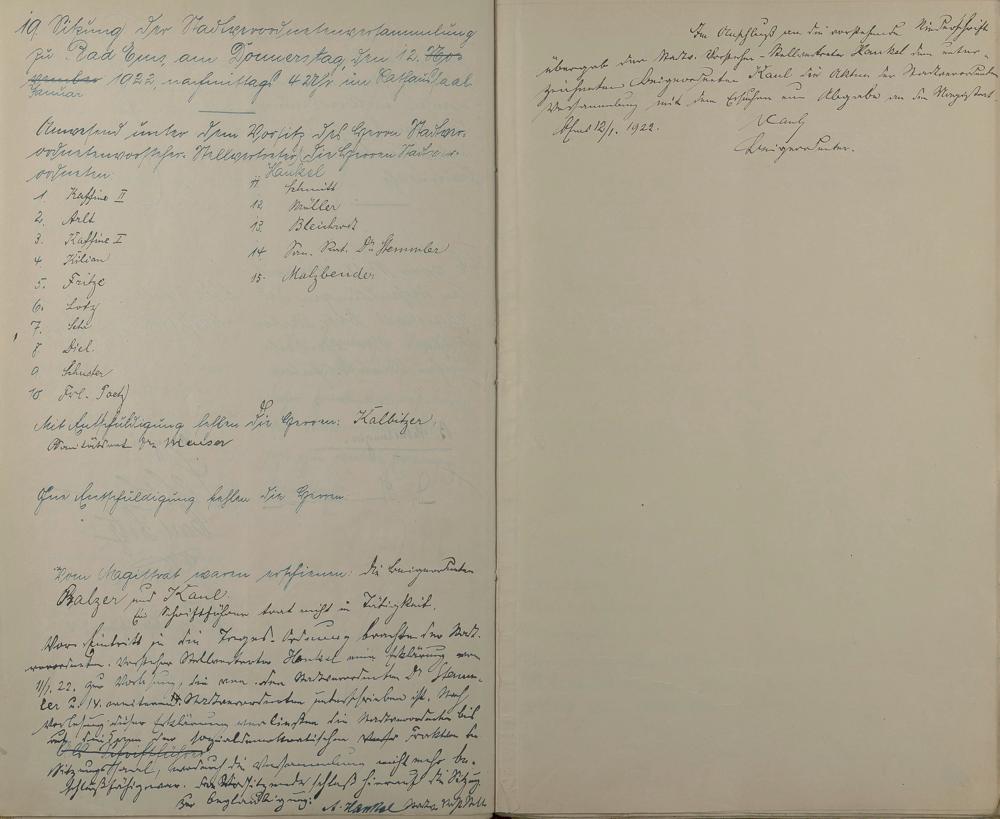 19. Sitzung der Stadtverordnetenversammlung
zu Bad Ems am Donnerstag, den 12. Nov-
vember 1922, nachmittags 4 Uhr im Rathaussaal
Januar
Anwesend unter dem Vorsitz des Herrn Stadtver-
ordnetenvorsteher-Stellvertreter die Herren Stadtver-
ordneten: Hankel
1. Kaffine II
2. Arlt
3. Kaffine I
4. Kilian
5. Fritze
6. Lotz
7.
8 Diel.
9 Schuster
10 Frl. Poetz
11 Schmitt
12 Müller
13. Bleichrodt
14 San. Rat. Dr. Stemmler
15. Malzbender
Mit Entschuldigung fehlen die Herren: Kalbitzer,
Sanitätsrat Dr. Meuser
Ohne Entschuldigung fehlen die Herren
Vom Magistrat waren erschienen: die Beigeordneten
Balzer und Kaul.
Ein Schriftführer trat nicht in Tätigkeit.
Vor Eintritt in die Tages-Ordnung brachte der Stadt-
verordneten-Vorsteher Stellvertreter Hankel eine Erklärung vom
11/1. 22. zur Vorlesung, die von dem Stadtverordneten Dr Stemm-
ler u. 14 weiteren Stadtverordneten unterschrieben ist. Nach
Vorlesung dieser Erklärung verliessen die Stadtverordneten bis
auf diejenigen der sozialdemokratischen Fraktion den
Als Schriftführer
Sitzungssaal, wodurch die Versammlung nicht mehr be-
schlußfähig war. Der Vorsitzende schloß hierauf die Sitzung.
Zur Beglaubigung: A. Hankel
Im Anschluß an die vorstehende Niederschrift
übergab der Stadtv. Vorsteher-Stellvertreter Hankel dem unter-
zeichneten Beigeordneten Kaul die Akten der Stadtverordneten
Versammlung mit dem Ersuchen um Abgabe an den Magistrat.
Ems 12/1. 1922.
Kaul
Beigeordneter.